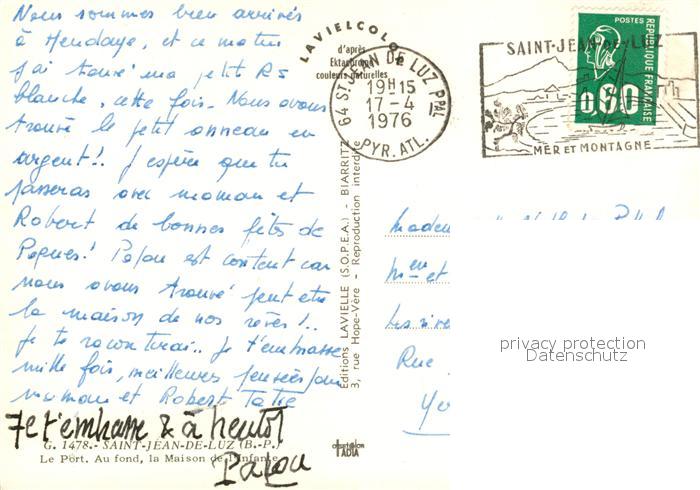 Nous sommes bien arrivés
à Hendaye, et ce matin
j'ai trouvé ma petit RS
blanche, cette fois. Nous avons
trouvé le petit anneau en
argent!. J'espère que tu
passeras avec maman et
Robert de bonnes fêtes de
Paques! Papou est content car
nous avons trouvé peut etre
la maison de nos rêves!..
je te raconterai.. je t'embrasse
mille fois, meilleures pensées pour
maman et Robert Tatie
Je t'embrasse & à bientôt
Papou
G. 1478.- SAINT-JEAN-DE-LUZ (B.-P.)
Le Port. Au fond, la Maison de l'Infante
LAVIELCOLOR
d'après
Ektachrome
couleurs naturelles
64 ST JEAN DE LUZ PPAL
19H15
17-4
1976
PYR. ATL.
Editions LAVIELLE (S.O.P.E.A.) - BIARRITZ
3, rue Hope-Vère - Reproduction interdite
SAINT-JEAN-DE-LUZ
MER ET MONTAGNE
POSTES
REPUBLIQUE FRANÇAISE
0,60
et
Rue
privacy protection
Datenschutz